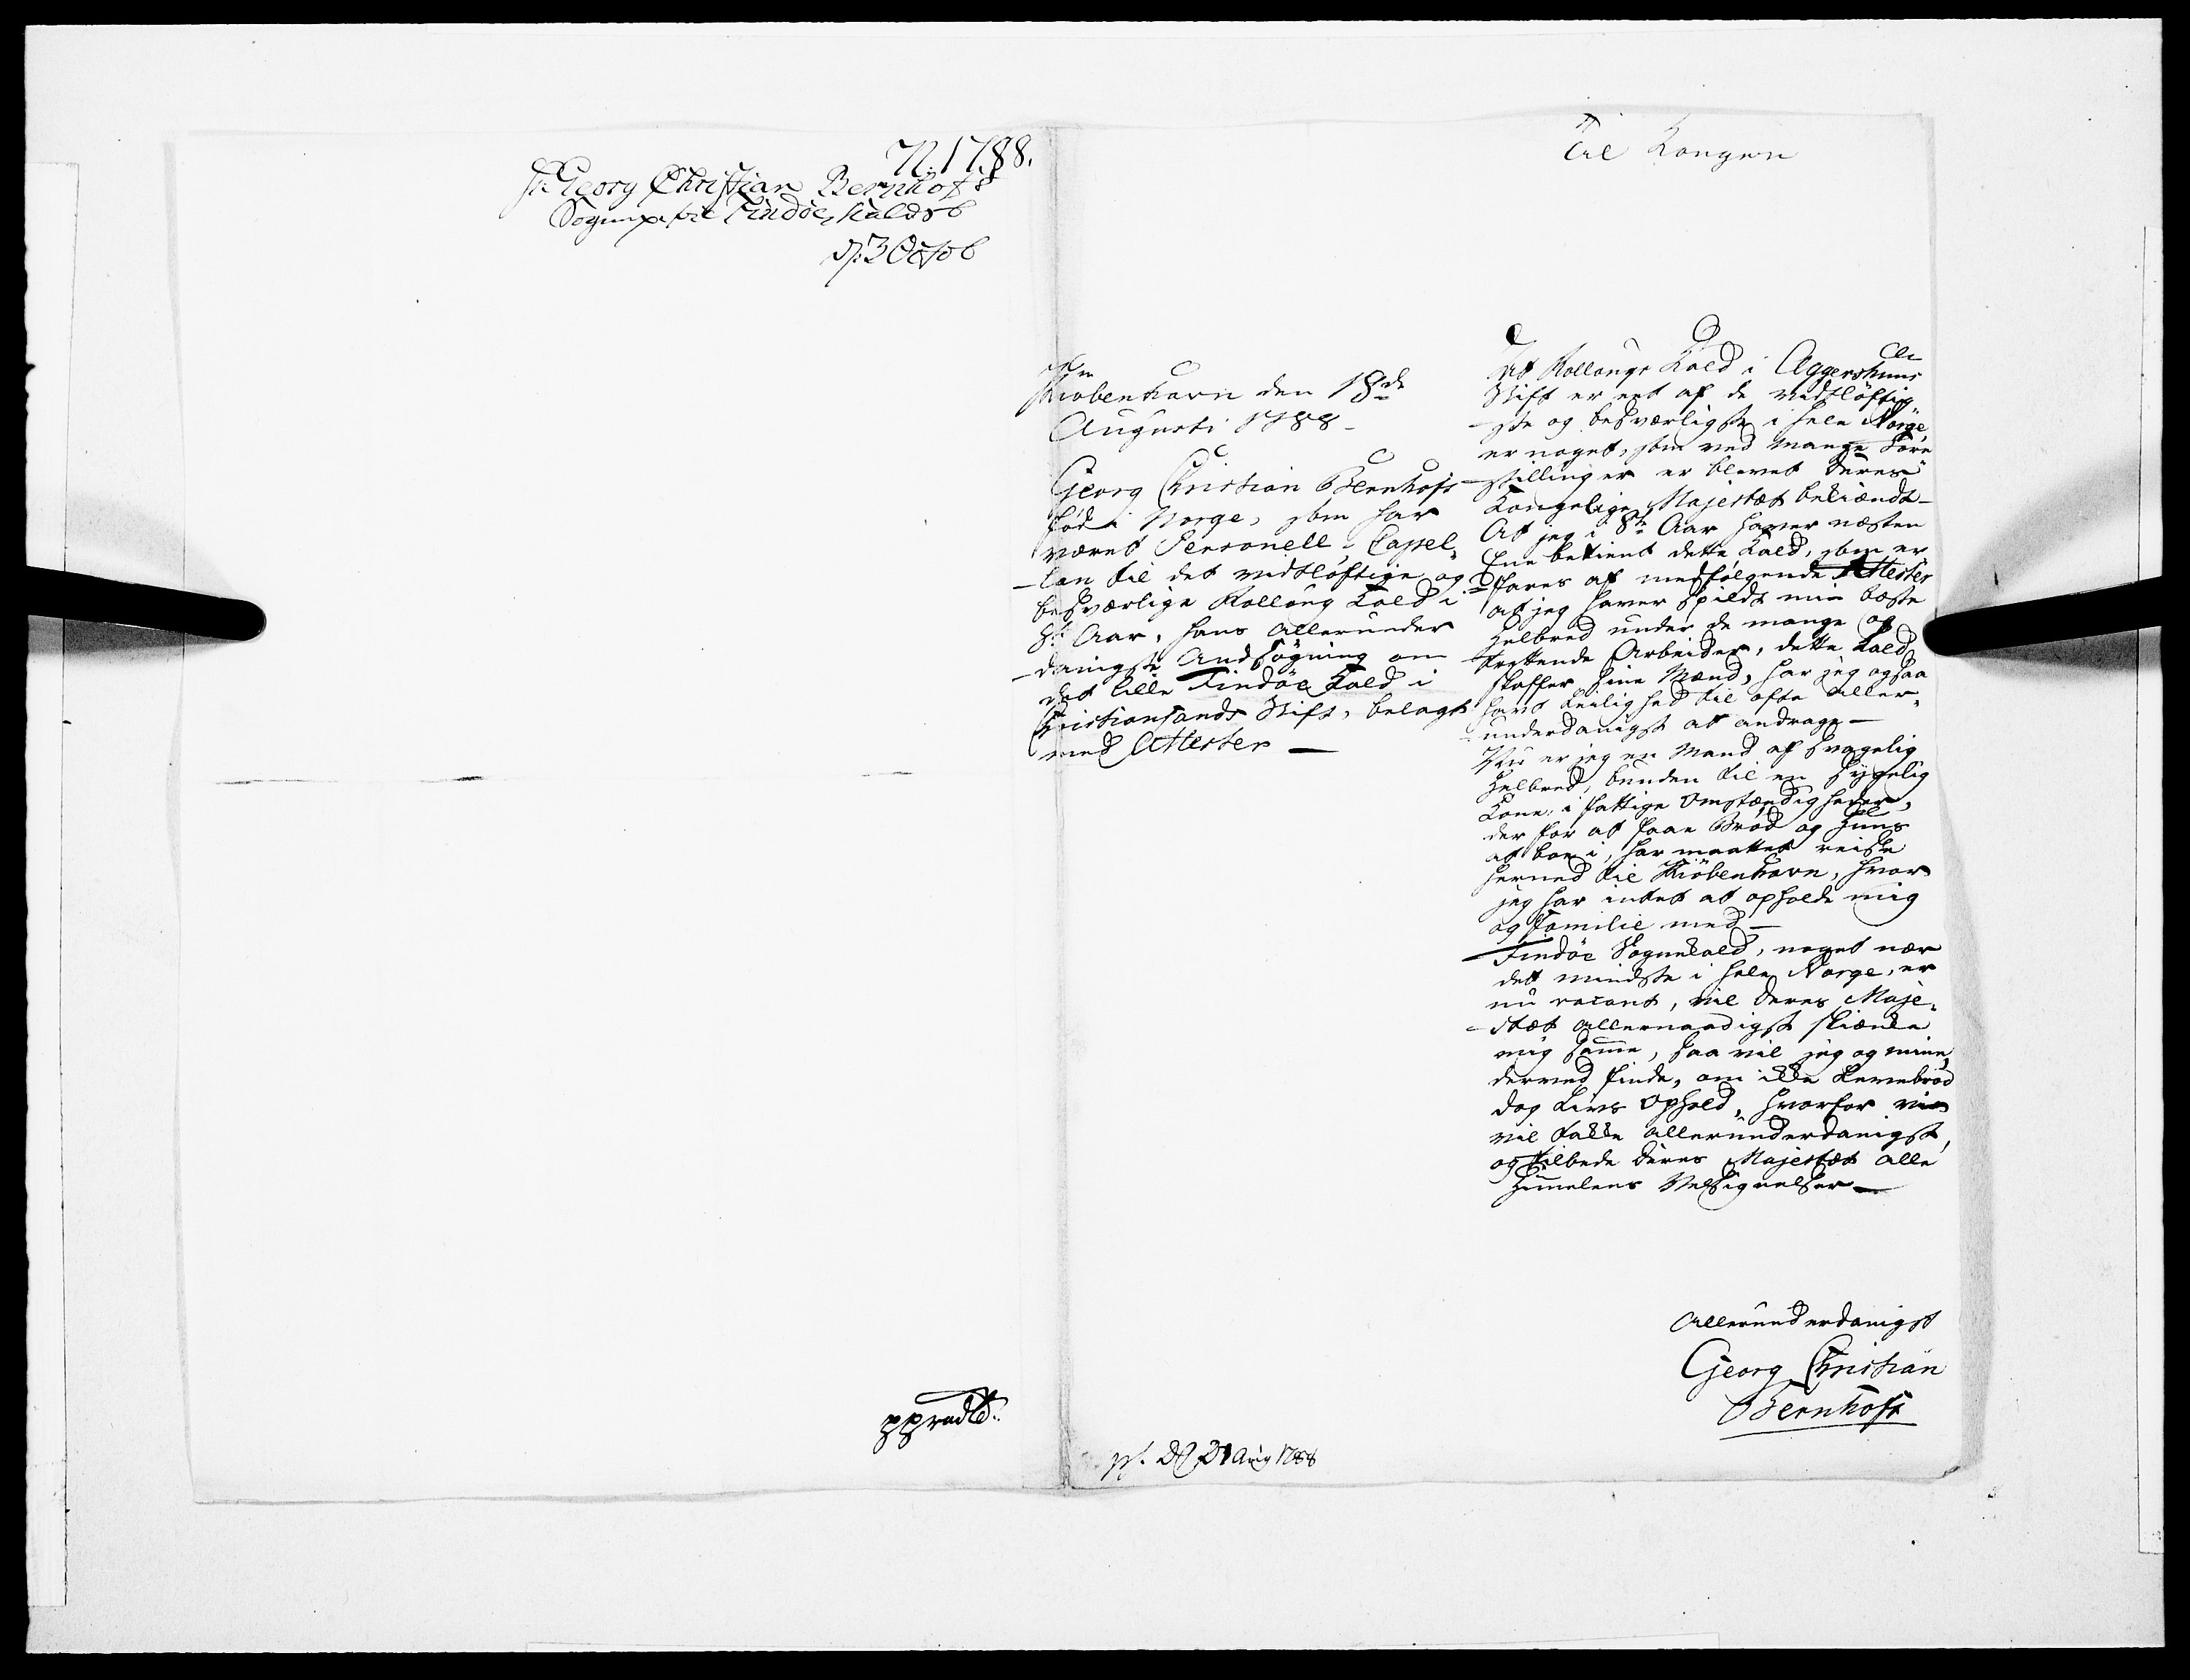 N. 1788.
Hr. Georg Christian Bernhoft
Sognepr. til Findöe Kald
d: 3 Octob
pprodtd.
Kiöbenhavn den 18de
Augusti 1788 -
Georg Christian Bernhoft
fød i Norge, som har
været Personell Capel-
-lan til det vidtløftige og
besværlige Kollong Kald i
8te Aar, hans allerunder
-danigste Andsögning om
det lille Findöe Kald i
Christiansands Stift, belagt
med Attester -
Til Kongen
At Kollongs Kald i Aggershuus
Stift er eet af de vidtløftig
-ste og besværligste i hele Norge,
er noget, som ved mange Fore
-stillinger er blevet Deres
Kongelige Majestæt bekiendt -
At jeg i 8te Aar haver næsten
Ene betient dette Kald, som er-
-fares af medfølgende Attester
at jeg haver spildt min beste
Helbred under de mange og
-trættende Arbeider, dette Kald
skaffer sine Mænd, har jeg ogsaa
havt Leilighed til ofte aller-
-underdanigst at andrage -
Nu er jeg en Mand af svagelig
Helbred, bunden til en sygelig
Kone, i fattige Omstændigheder,
der for at faae Brød og Huus
at boe i, har maattet reise
herned til Kiöbenhavn, hvor
jeg har intet at opholde mig
og Familie med -
Findöe Sognekald, noget nær
det mindste i hele Norge, er
nu vacant, vil Deres Maje-
-stæt allernaadigst skienke
mig samme, saa vil jeg og mine,
derved finde, om ikke Levebrød
dog Livs Ophold, hvorfor vi
vil takke allerunderdanigst,
og tilbede Deres Majestæt alle
Himelens Velsignelser -
Allerunderdanigst
Georg Christian
Bernhoft
21 Aug 1788